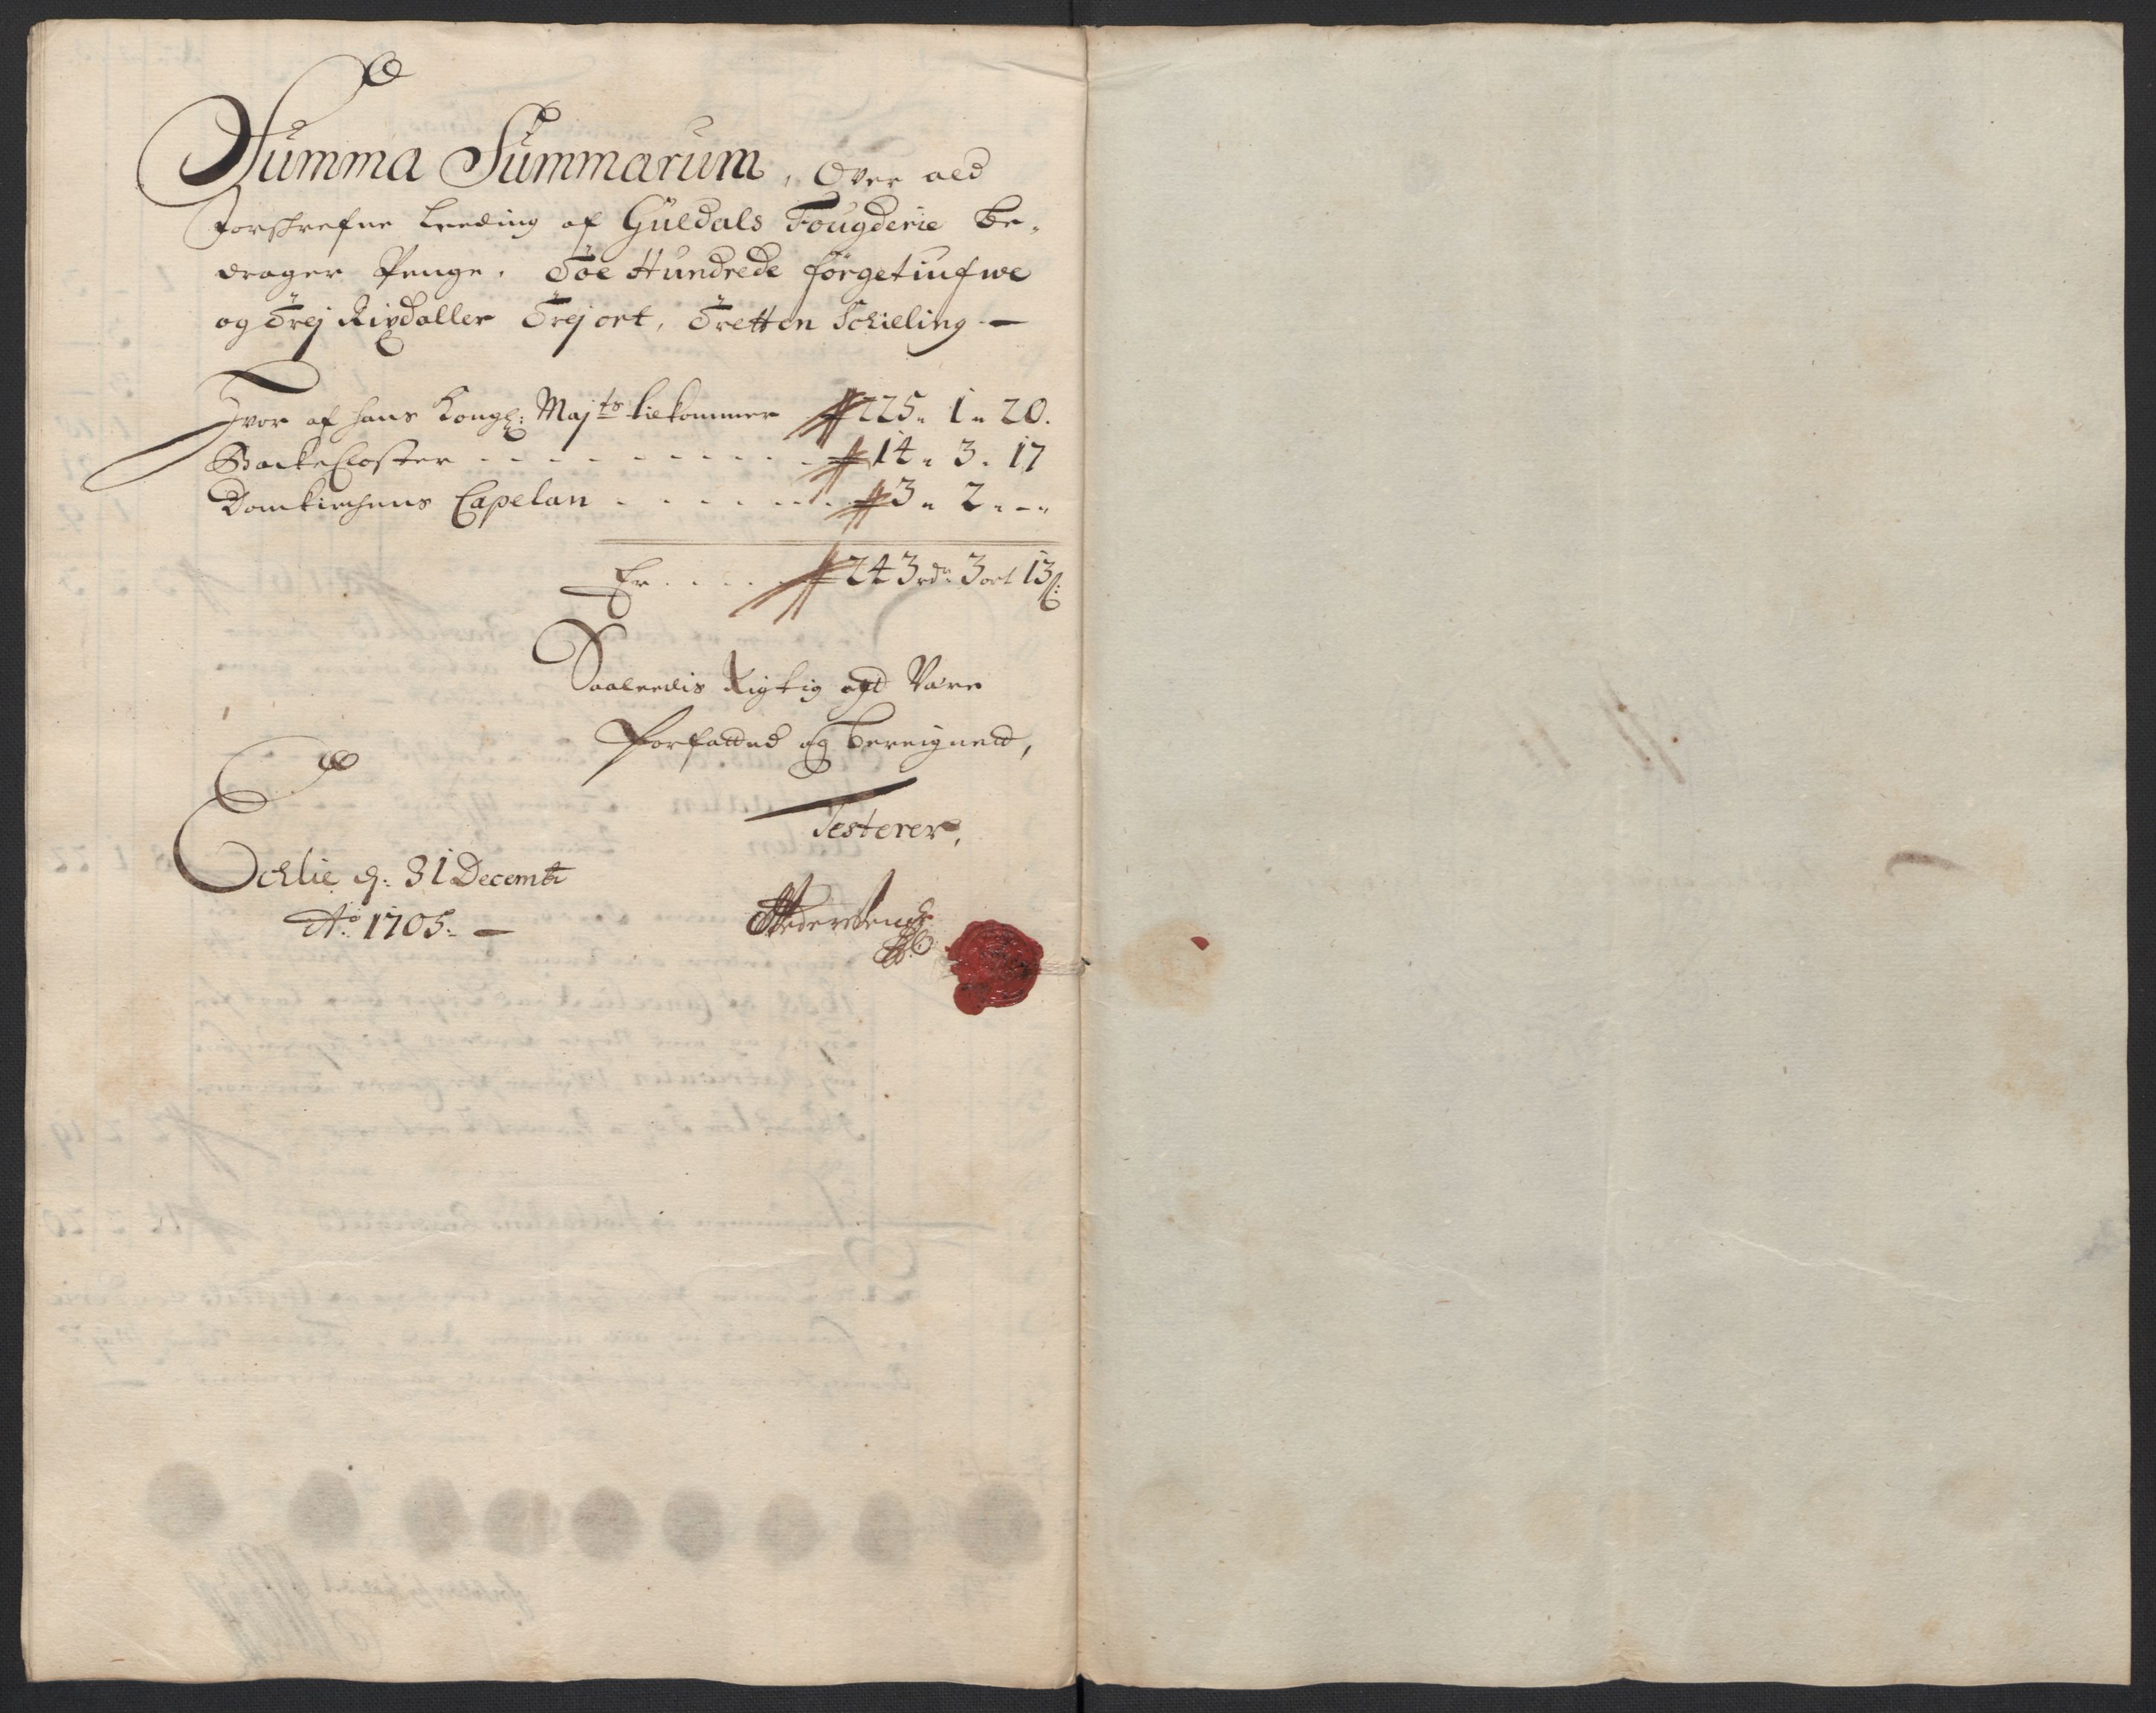 Summa Summarum, Over ald
forschrefne Leeding af Guldals Fougderie be„
drager Penge, Toe Hundredeførgetiufwe
og Trej Rixdaller Trej ort, Tretten Schilling —
Hvor af hans Kongl: Majts tilkommer 225„ 1„ 20.
BackeCloster - - - - - - - - - - 14„ 3„ 17
Domkirchens Capelan - - - - - - 3„ 2„ -„
Er - - - - 243 rdr 3 ort 13 s:
Saaledis Rigtig at Være
forfatted og bereigned,
Testerer,
Echlie d: 31 Decembr
Ao 1705. —